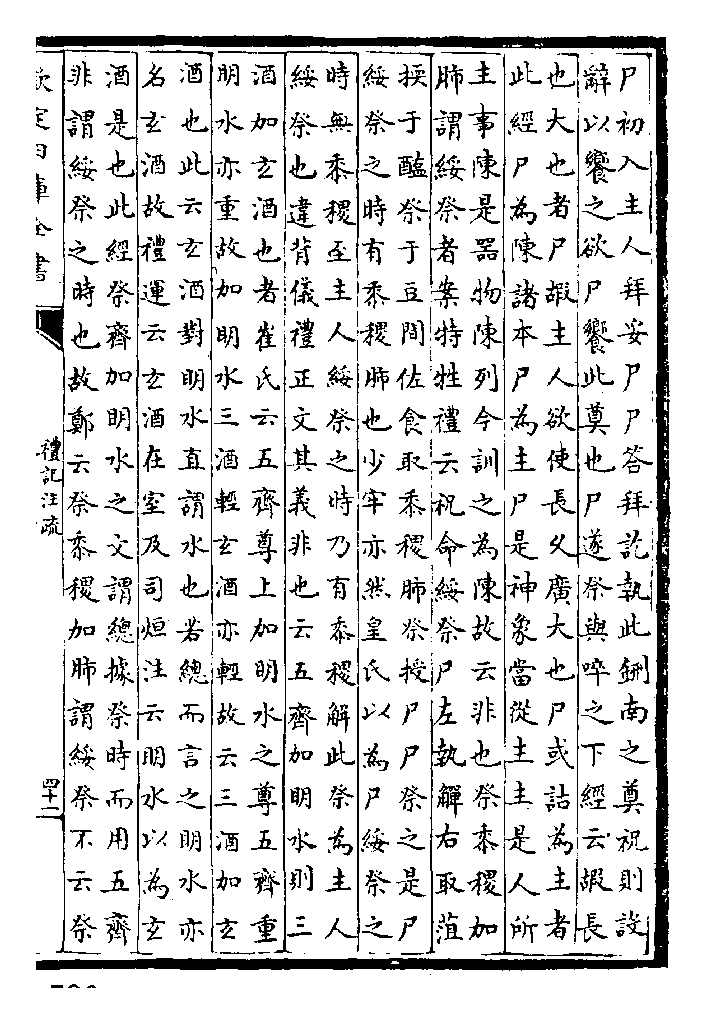 尸初入主人拜妥尸尸答拜訖執此鉶南之奠祝則設
辭以饗之欲尸饗此奠也尸遂祭與啐之下經云嘏長
也大也者尸嘏主人欲使長久廣大也尸或詁為主者
此經尸為陳諸本尸為主尸是神象當從主主是人所
主事陳是器物陳列今訓之為陳故云非也祭黍稷加
肺謂綏祭者案特牲禮云祝命綏祭尸左執觶右取菹
㨎于醢祭于豆間佐食取黍稷肺祭授尸尸祭之是尸
綏祭之時有黍稷肺也少牢亦然皇氏以為尸綏祭之
時無黍稷至主人綏祭之時乃有黍稷解此祭為主人
綏祭也違背儀禮正文其義非也云五齊加明水則三
酒加玄酒也者崔氏云五齊尊上加明水之尊五齊重
明水亦重故加明水三酒輕玄酒亦輕故云三酒加玄
酒也此云玄酒對明水直謂水也若總而言之明水亦
名玄酒故禮運云玄酒在室及司烜注云明水以為玄
酒是也此經祭齊加明水之文謂總據祭時而用五齊
非謂綏祭之時也故鄭云祭黍稷加肺謂綏祭不云祭
欽定四庫全書
禮記注疏
四十二